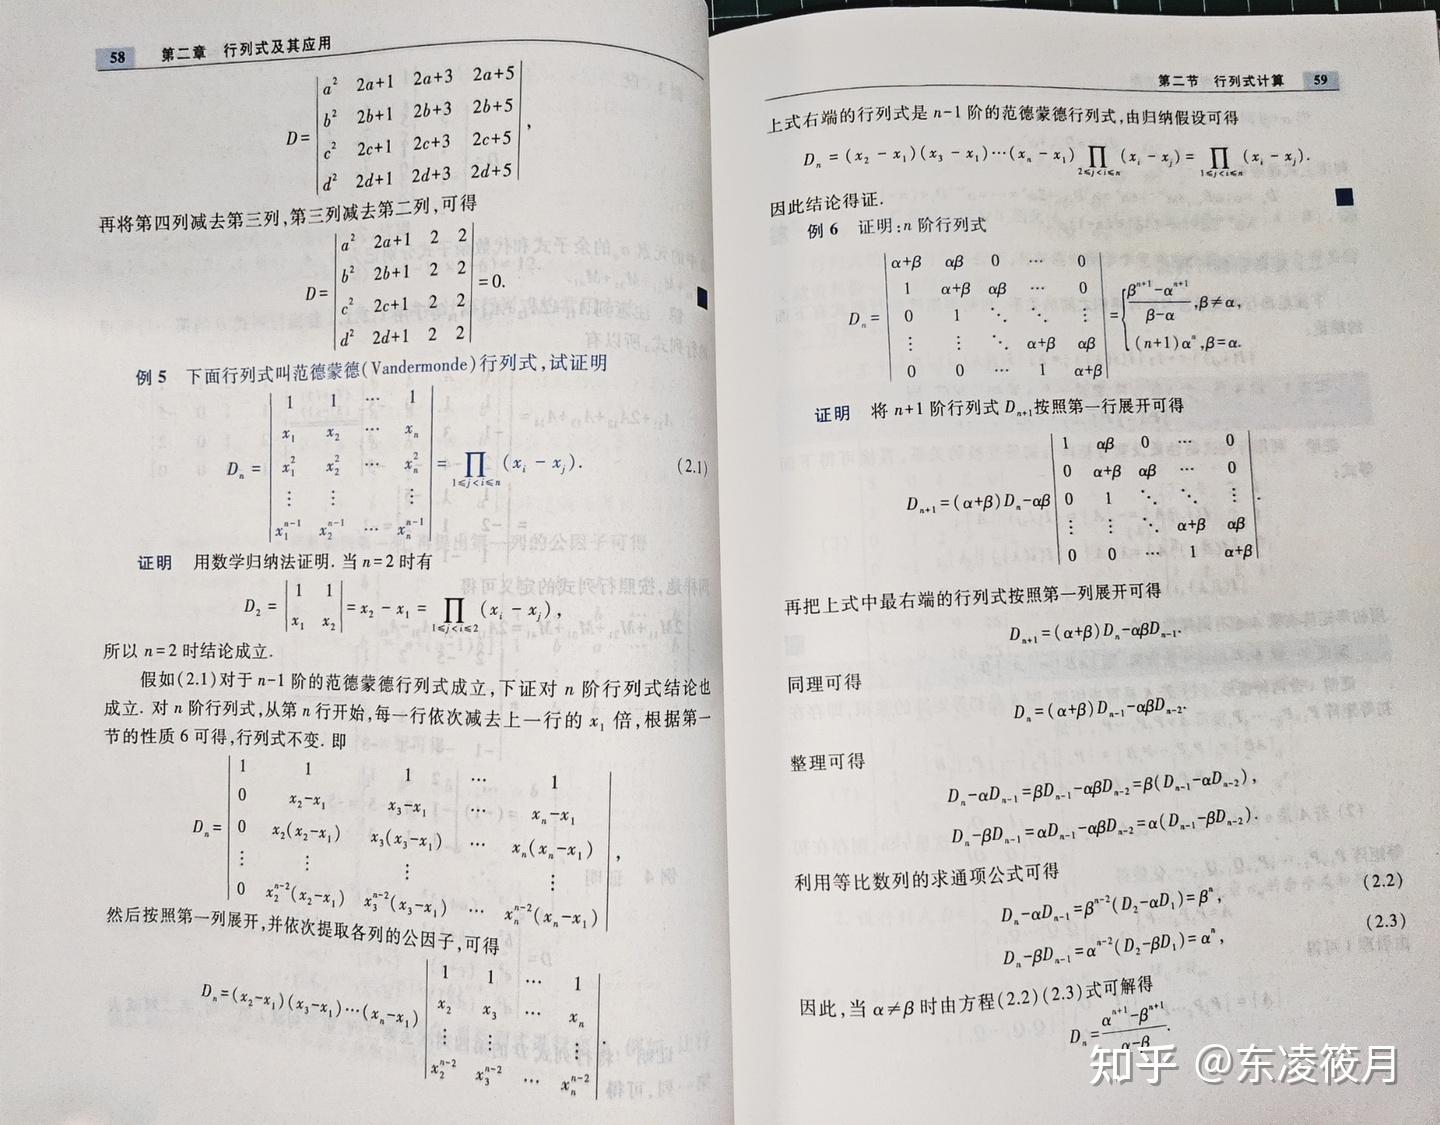 58 第二章 行列式及其应用
D=
a² 2a+1 2a+3 2a+5
b² 2b+1 2b+3 2b+5
c² 2c+1 2c+3 2c+5
d² 2d+1 2d+3 2d+5
,
再将第四列减去第三列,第三列减去第二列,可得
D=
a² 2a+1 2 2
b² 2b+1 2 2
c² 2c+1 2 2
d² 2d+1 2 2
=0.
例 5 下面行列式叫范德蒙德(Vandermonde)行列式,试证明
Dₙ =
1 1 ⋯ 1
x₁ x₂ ⋯ xₙ
x₁² x₂² ⋯ xₙ²
⋮ ⋮ ⋮
x₁ⁿ⁻¹ x₂ⁿ⁻¹ ⋯ xₙⁿ⁻¹
= ∏ (xᵢ − xⱼ). (2.1)
1≤j<i≤n
证明 用数学归纳法证明. 当 n=2 时有
D₂ =
1 1
x₁ x₂
= x₂ − x₁ = ∏ (xᵢ − xⱼ),
1≤j<i≤2
所以 n=2 时结论成立.
假如(2.1)对于 n-1 阶的范德蒙德行列式成立,下证对 n 阶行列式结论也
成立. 对 n 阶行列式,从第 n 行开始,每一行依次减去上一行的 x₁ 倍,根据第一
节的性质 6 可得,行列式不变. 即
Dₙ=
1 1 1 ⋯ 1
0 x₂−x₁ x₃−x₁ ⋯ xₙ−x₁
0 x₂(x₂−x₁) x₃(x₃−x₁) ⋯ xₙ(xₙ−x₁)
⋮ ⋮ ⋮ ⋮
0 x₂ⁿ⁻²(x₂−x₁) x₃ⁿ⁻²(x₃−x₁) ⋯ xₙⁿ⁻²(xₙ−x₁)
,
然后按照第一列展开,并依次提取各列的公因子,可得
Dₙ=(x₂−x₁)(x₃−x₁)⋯(xₙ−x₁)
1 1 ⋯ 1
x₂ x₃ ⋯ xₙ
⋮ ⋮ ⋮
x₂ⁿ⁻² x₃ⁿ⁻² ⋯ xₙⁿ⁻²
.
第二节 行列式计算 59
上式右端的行列式是 n-1 阶的范德蒙德行列式,由归纳假设可得
Dₙ = (x₂ − x₁)(x₃ − x₁)⋯(xₙ − x₁) ∏ (xᵢ − xⱼ) = ∏ (xᵢ − xⱼ).
2≤j<i≤n 1≤j<i≤n
因此结论得证.
例 6 证明:n 阶行列式
Dₙ=
α+β αβ 0 ⋯ 0
1 α+β αβ ⋯ 0
0 1 ⋱ ⋱ ⋮
⋮ ⋮ ⋱ α+β αβ
0 0 ⋯ 1 α+β
=
(βⁿ⁺¹−αⁿ⁺¹)/(β−α) ,β≠α,
(n+1)αⁿ ,β=α.
证明 将 n+1 阶行列式 Dₙ₊₁按照第一行展开可得
Dₙ₊₁=(α+β)Dₙ−αβ
1 αβ 0 ⋯ 0
0 α+β αβ ⋯ 0
0 1 ⋱ ⋱ ⋮
⋮ ⋮ ⋱ α+β αβ
0 0 ⋯ 1 α+β
.
再把上式中最右端的行列式按照第一列展开可得
Dₙ₊₁=(α+β)Dₙ−αβDₙ₋₁.
同理可得
Dₙ=(α+β)Dₙ₋₁−αβDₙ₋₂.
整理可得
Dₙ−αDₙ₋₁=βDₙ₋₁−αβDₙ₋₂=β(Dₙ₋₁−αDₙ₋₂),
Dₙ−βDₙ₋₁=αDₙ₋₁−αβDₙ₋₂=α(Dₙ₋₁−βDₙ₋₂).
利用等比数列的求通项公式可得
Dₙ−αDₙ₋₁=βⁿ⁻²(D₂−αD₁)=βⁿ, (2.2)
Dₙ−βDₙ₋₁=αⁿ⁻²(D₂−βD₁)=αⁿ, (2.3)
因此,当 α≠β 时由方程(2.2)(2.3)式可解得
Dₙ=(αⁿ⁺¹−βⁿ⁺¹)/(α−β).
知乎 @东凌筱月